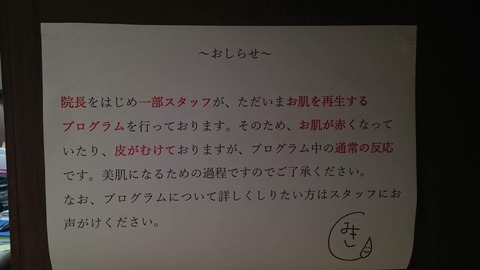 ～おしらせ～
院長をはじめ一部スタッフが、ただいまお肌を再生する
プログラムを行っております。そのため、お肌が赤くなって
いたり、皮がむけておりますが、プログラム中の通常の反応
です。美肌になるための過程ですのでご了承ください。
なお、プログラムについて詳しくしりたい方はスタッフにお
声がけください。